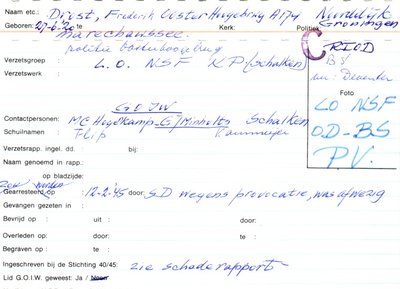 Naam etc.: Driest, Frederik Coster Huyebring A174 Noorddijk
Geboren: 27-6-'20 te Kerk: Politiek Groningen
Marechaussee. C RIOD
politie
Verzetsgroep : L.O. NSF K.P. (Schalken) BS
Verzetswerk :
Foto
G O I W
LO NSF
Contactpersonen: Schalken
OD-BS
Schuilnamen : Flip
P.V.
Verzetsrapp. ingel. dd. : bij:
Naam genoemd in rapp.:
op bladzijde:
Gearresteerd op : 12-2-'45 door: SD wegens provocatie, was afwezig
Gevangen gezeten in :
Bevrijd op : uit : door:
Overleden op: te : door:
Begraven op : te :
Ingeschreven bij de Stichting 40/45: zie schaderapport
Lid G.O.I.W. geweest: Ja / Neen